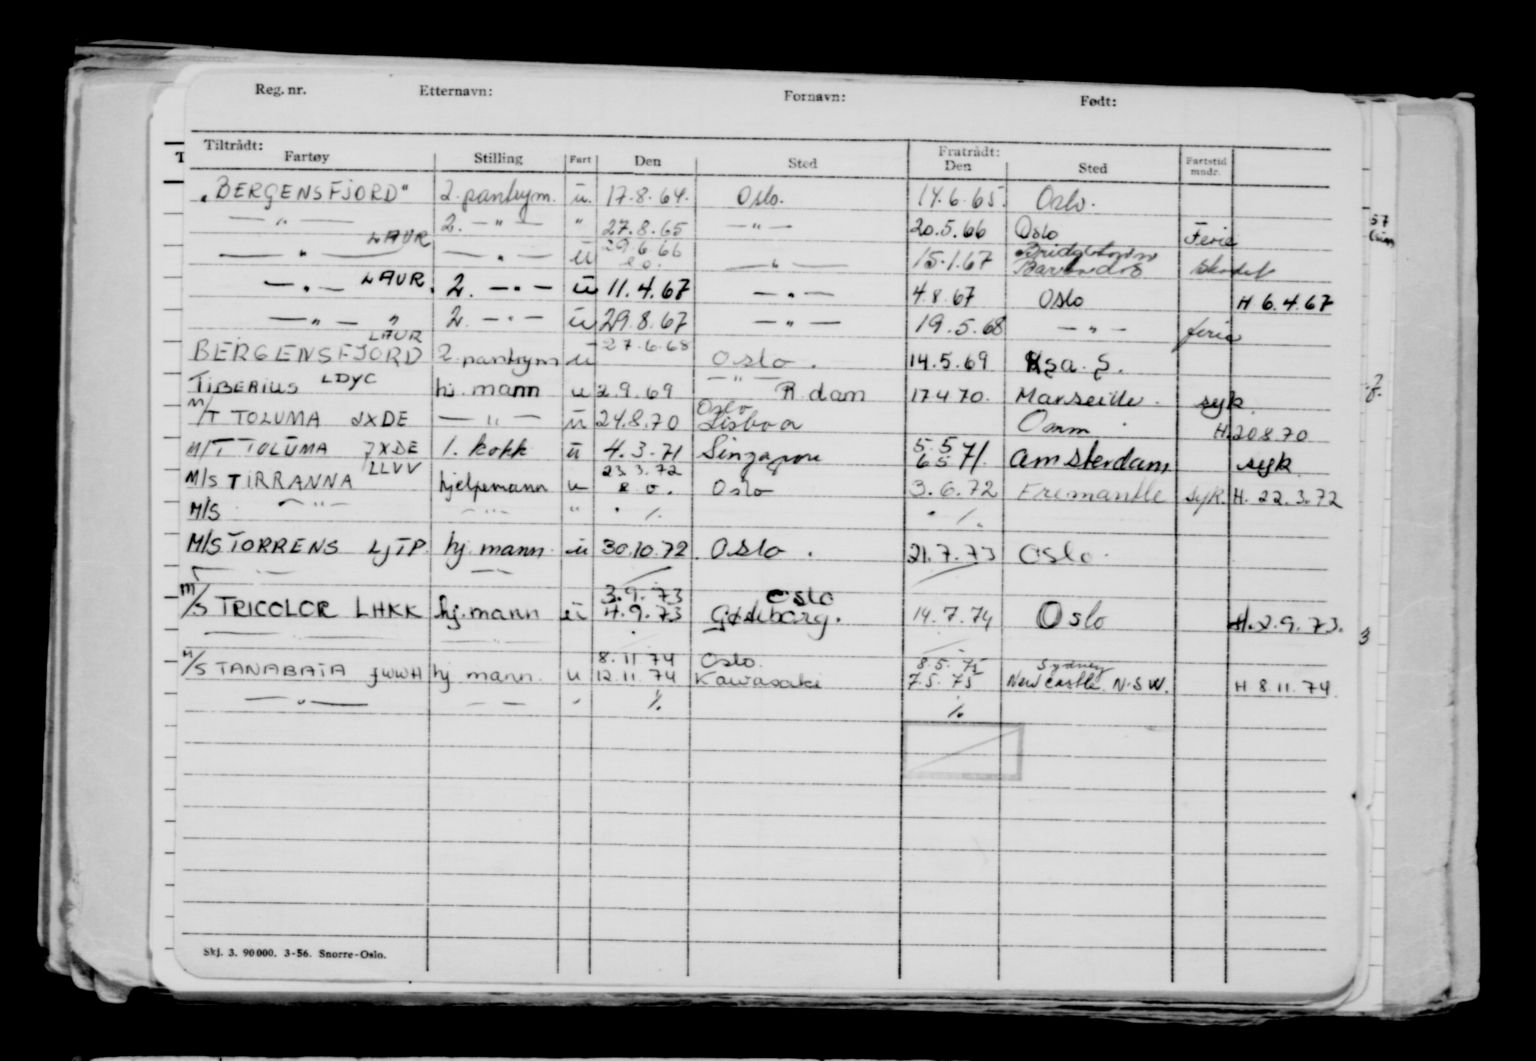 Reg. nr. Etternavn: Fornavn: Født:
Tiltrådt: Fratrådt:
Fartøy Stilling Fart Den Sted Den Sted Fartstid mndr.
"BERGENSFJORD" 2. pantrym. u. 17.8.64. Oslo. 14.6.65. Oslo.
— " — 2. — " — " 27.8.65 — " — 20.5.66 Oslo Ferie
LAUR 29.6.66
— " — — " — u — " — 15.1.67 Bridgetown Barbados
— " — LAUR. 2. — " — u 11.4.67 — " — 4.8.67 Oslo H 6.4.67
— " — " 2. — " — u 29.8.67 — " — 19.5.68 — " — ferie
LAUR 27.6.68
BERGENSFJORD 2. pantrym u Oslo. 14.5.69
TIBERIUS LDYC hj. mann u 2.9.69 — " — R.dam 17.4.70. Marseille. syk.
M/T TOLUMA JXDE — " — u 24.8.70 Oslo Lisboa H.20870
M/T TOLUMA JXDE 1. kokk u 4.3.71 Singapore 5.5 6.5 71. Amsterdam syk
LLVV 23.3.72
M/S TIRRANNA hjelpemann u Oslo 3.6.72 Fremantle syk. H. 22.3.72
M/S — " — — " — " ./. ./.
M/S TORRENS LJTP. hj. mann. u 30.10.72. Oslo. 21.7.73 Oslo.
3.9.73 Oslo
M/S TRICOLOR LHKK hj. mann u 4.9.73 Gøteborg. 14.7.74 Oslo H. 2.9.73.
8.11.74 Oslo. 8.5.75 Sydney
M/S TANABATA JWWA hj. mann. u 12.11.74 Kawasaki 7.5.75 Newcastle N.S.W. H 8.11.74.
— " — — — " ./. ./.
Skj. 3. 90000. 3-56. Snorre-Oslo.